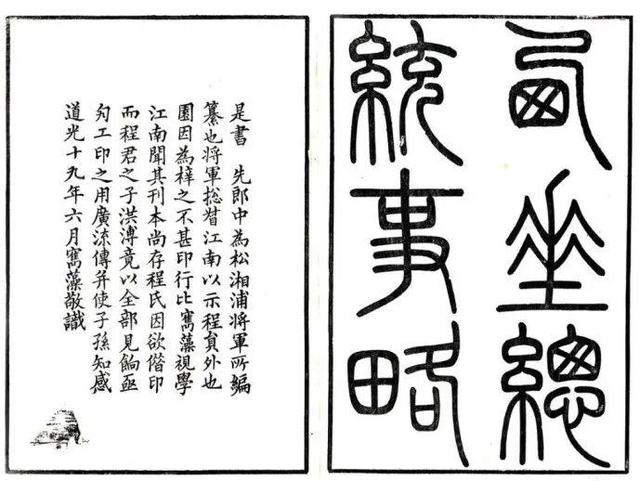 西垂總
統事略
是書 先郎中為松湘浦將軍所編
纂也將軍捴督江南以示程員外也
園因為梓之不甚印行比寯藻視學
江南聞其刊本尚存程氏因欲偕印
而程君之子洪溥竟以全部見餉亟
匄工印之用廣流傳并使子孫知感
道光十九年六月寯藻敬識